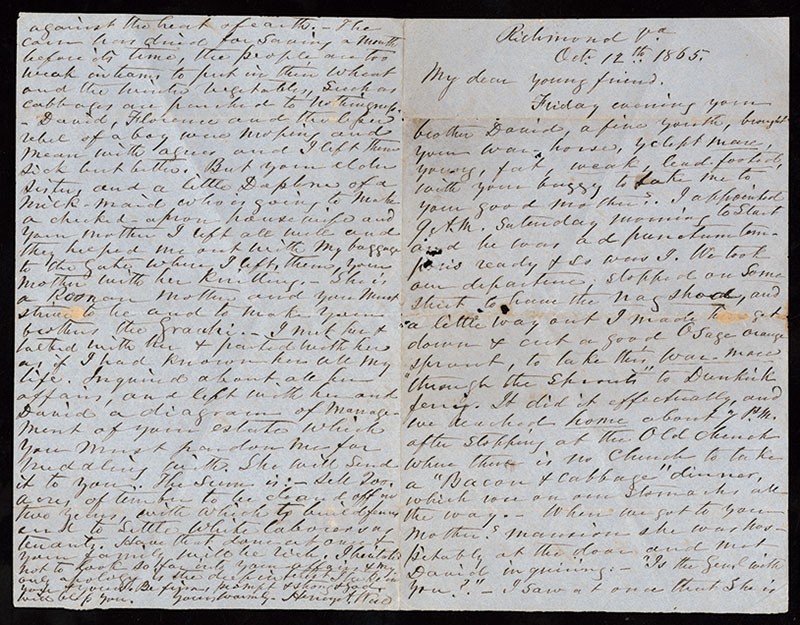 Richmond Va
Oct. 12th 1865.
My dear young friend.
Friday evening your
brother David, a fine youth, brought
your war-horse, yclept mare,
young, fat, weak, lead footed,
with your buggy to take me to
your good mother's. I appointed
9 A.M. Saturday morning to start
and he was ad punctum tem-
poris ready & so was I. We took
our departure, stopped on some
street to have the nag shod, and
a little way out I made him get
down & cut a good Osage orange
sprout, to take this "war-mare
through the sprouts" to Dunkirk
ferry. It did it effectually, and
we reached home about 7 P.M.
after stopping at the Old Church
where there is no Church to take
a "Bacon & Cabbage" dinner,
which rose on our stomachs all
the way. - When we got to your
Mother's mansion she was hos-
pitably at the door and met
David inquiring: - "Is the Genl with
you?" - I saw at once that she is
against the heat of earth. - The
corn has dried for saving a month
before its time, the people are too
weak to put in their wheat
and the winter vegetables, such as
cabbages are parched to nothingness.
- David, Florence and the
rebel of a boy were moping and
mean with agues and I left them
sick but better. But your elder
sister, and a little Daphne of a
milk-maid who is going to make
a checked-apron housewife and
your mother I left all well and
they helped me out with my baggage
to the gate, where I left them, your
mother with her knitting. - She is
a Roman mother and you must
strive to be and to make your
brothers the Gracchi. - I met her &
talked with her & parted with her
as if I had known her all my
life. Inquired about all her
affairs, and left with her and
David a diagram of manage-
ment of your estate which
you must pardon me for
meddling with. She will send
it to you. The sum is: - Sell 200
acres of timber to be cleared off in
two years, with which to build
to settle white laborers as
tenants. Have that done at once &
your family will be rich. I hesitated
not to look so far into your affairs & my
only apology is
Be firm prompt & strong & God
will help you. Yours warmly - Henry A. Wise